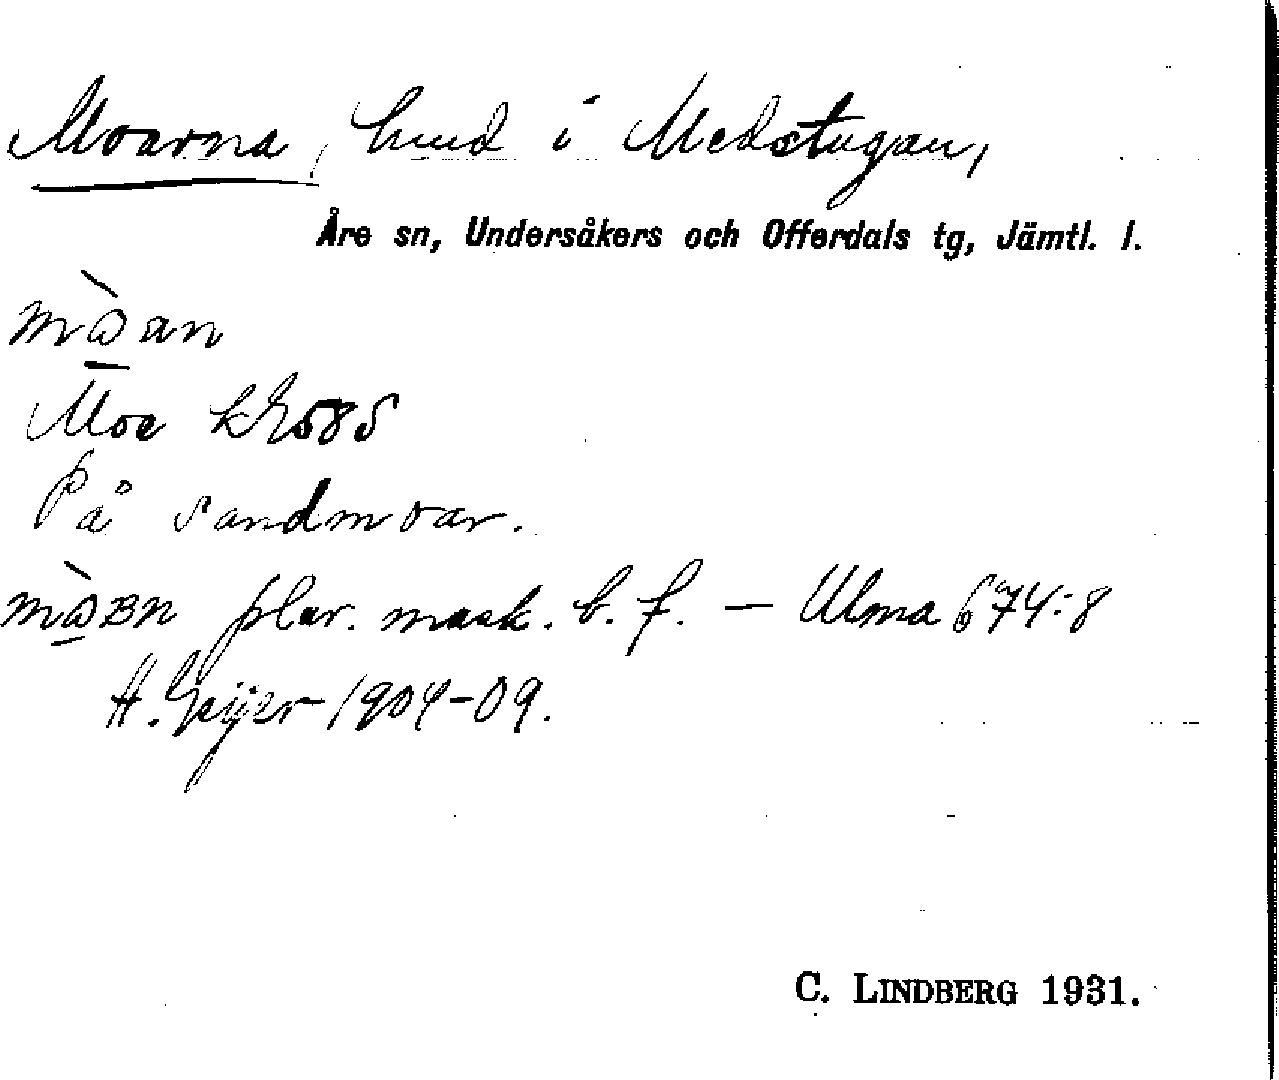 Moarna, hmd i Medstugan,
Åre sn, Undersåkers och Offerdals tg, Jämtl. l.
mò̱an
Moe
På sandmoar.
mò̱ʙn plur. mask. b. f. — Ulma 674:8
H. Geijer 1904-09.
C. LINDBERG 1931.